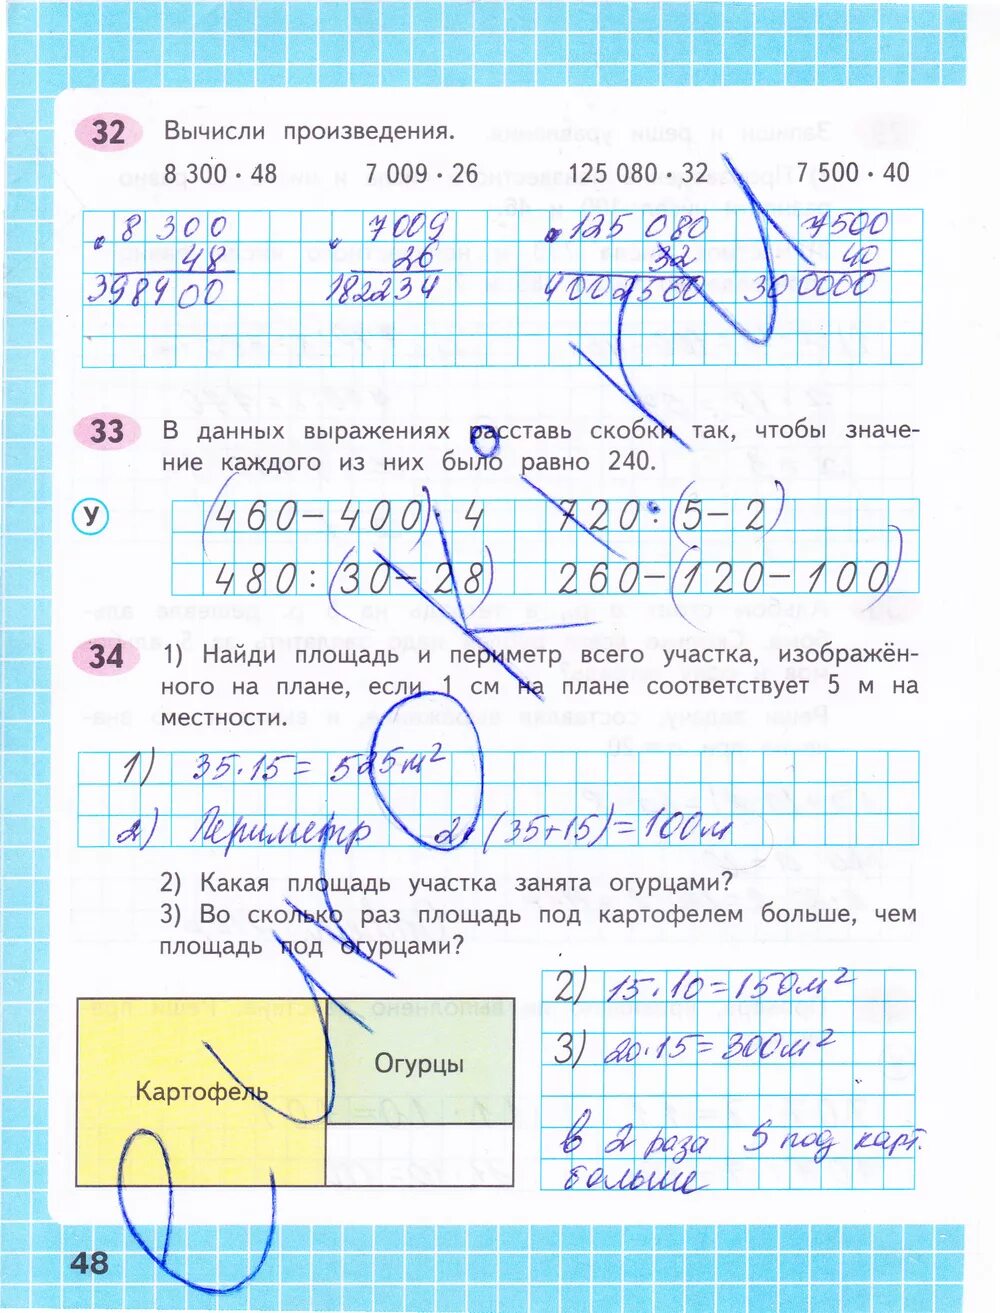 32 Вычисли произведения.
8 300 · 48 7 009 · 26 125 080 · 32 7 500 · 40
8 300 7009 125 080 7500
48 26 32 40
398400 182234 4002560 300000
33 В данных выражениях расставь скобки так, чтобы значе-
ние каждого из них было равно 240.
У (460-400)·4 720:(5-2)
480:(30-28) 260-(120-100)
34 1) Найди площадь и периметр всего участка, изображён-
ного на плане, если 1 см на плане соответствует 5 м на
местности.
1) 35·15= 525м²
2) Периметр 2·(35+15)=100м
2) Какая площадь участка занята огурцами?
3) Во сколько раз площадь под картофелем больше, чем
площадь под огурцами?
Картофель
Огурцы
2) 15·10=150м²
3) 20·15=300м²
в 2 раза S под карт.
больше
48